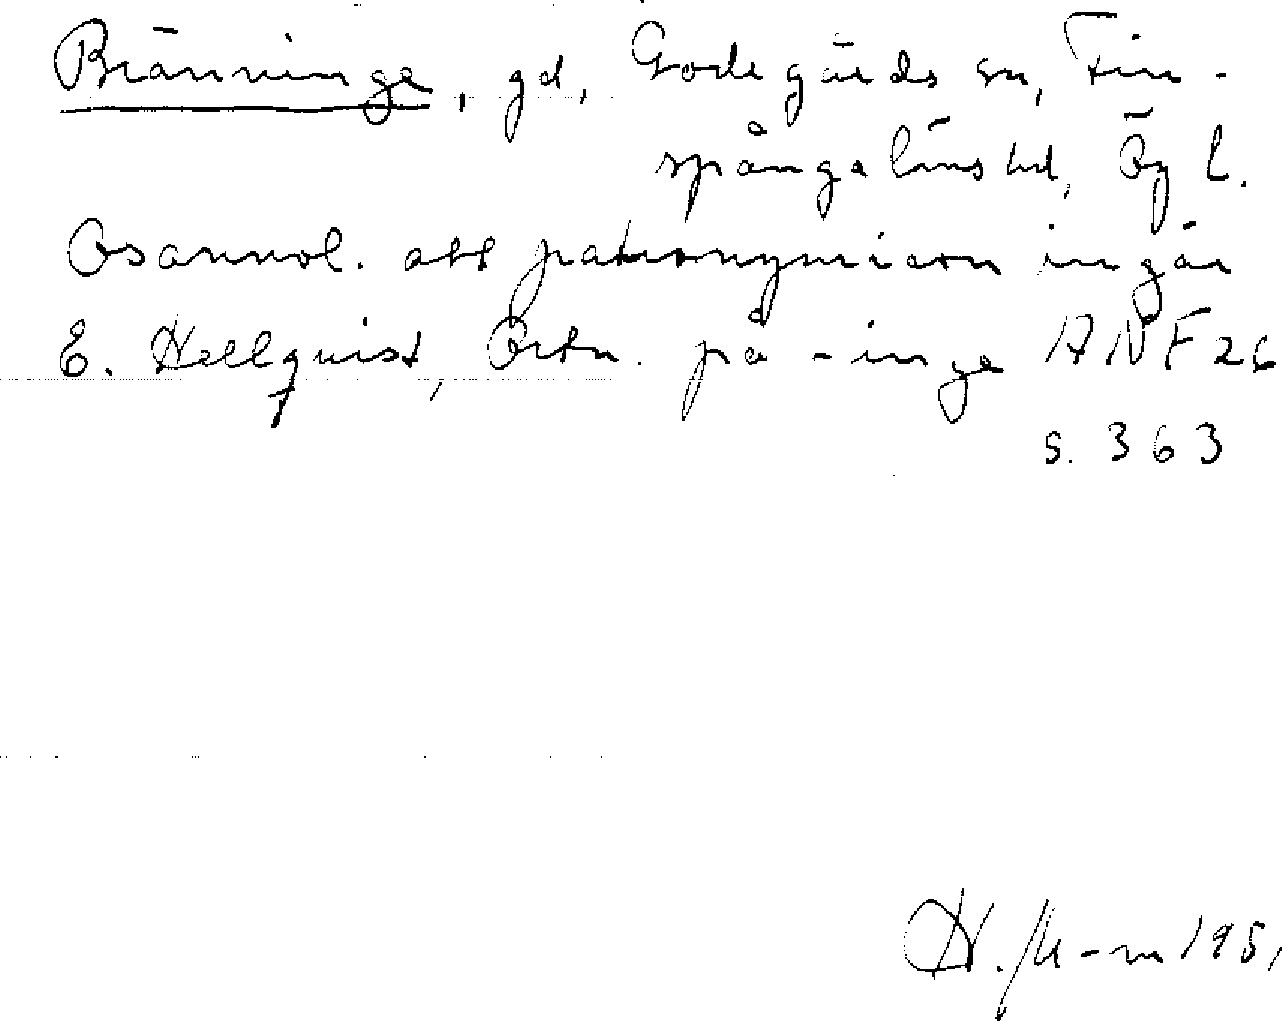 Bränninge, gd, Godegårds sn, Fin-
spångaläns hd, Ög l.
Osannol. att patronymicon ingår
E. Hellquist, Ortn. på -inge ANF 26
s. 363
H. M-m 1951